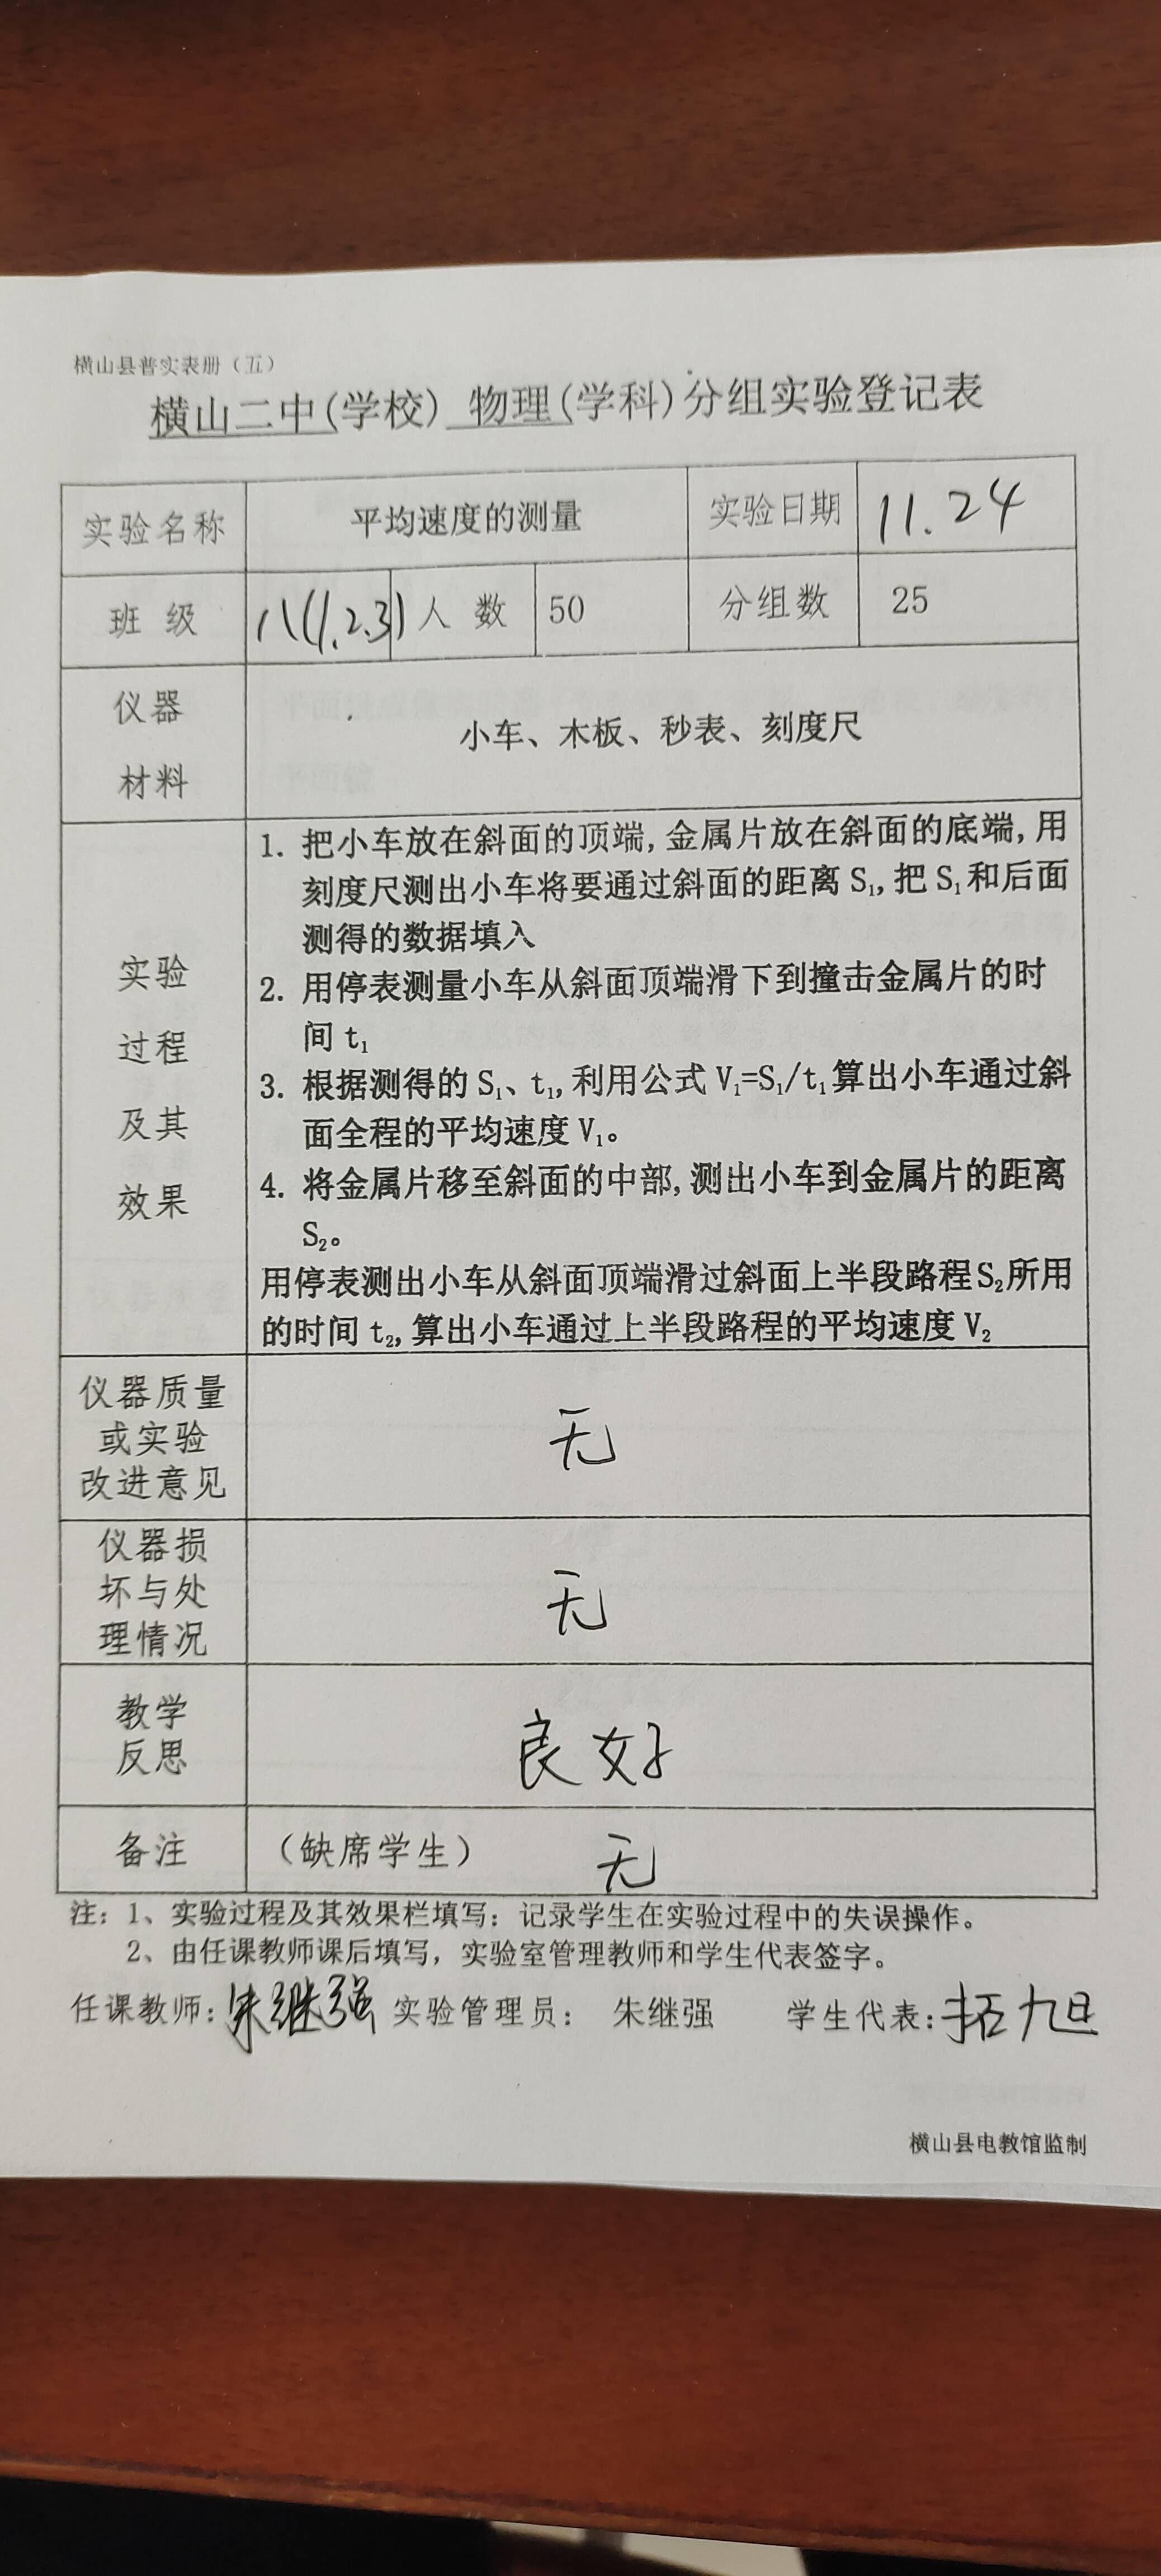 横山县普实表册（五）
横山二中(学校) 物理(学科)分组实验登记表
实验名称 平均速度的测量 实验日期 11.24
班 级 八(1.2.3) 人 数 50 分组数 25
仪器
材料
小车、木板、秒表、刻度尺
实验
过程
及其
效果
1. 把小车放在斜面的顶端, 金属片放在斜面的底端, 用
刻度尺测出小车将要通过斜面的距离 S₁, 把 S₁ 和后面
测得的数据填入
2. 用停表测量小车从斜面顶端滑下到撞击金属片的时
间 t₁
3. 根据测得的 S₁、t₁, 利用公式 V₁=S₁/t₁ 算出小车通过斜
面全程的平均速度 V₁。
4. 将金属片移至斜面的中部, 测出小车到金属片的距离
S₂。
用停表测出小车从斜面顶端滑过斜面上半段路程 S₂ 所用
的时间 t₂, 算出小车通过上半段路程的平均速度 V₂
仪器质量
或实验
改进意见
无
仪器损
坏与处
理情况
无
教学
反思
良好
备注 （缺席学生） 无
注：1、实验过程及其效果栏填写：记录学生在实验过程中的失误操作。
2、由任课教师课后填写，实验室管理教师和学生代表签字。
任课教师：朱继强 实验管理员： 朱继强 学生代表：拓九旦
横山县电教馆监制